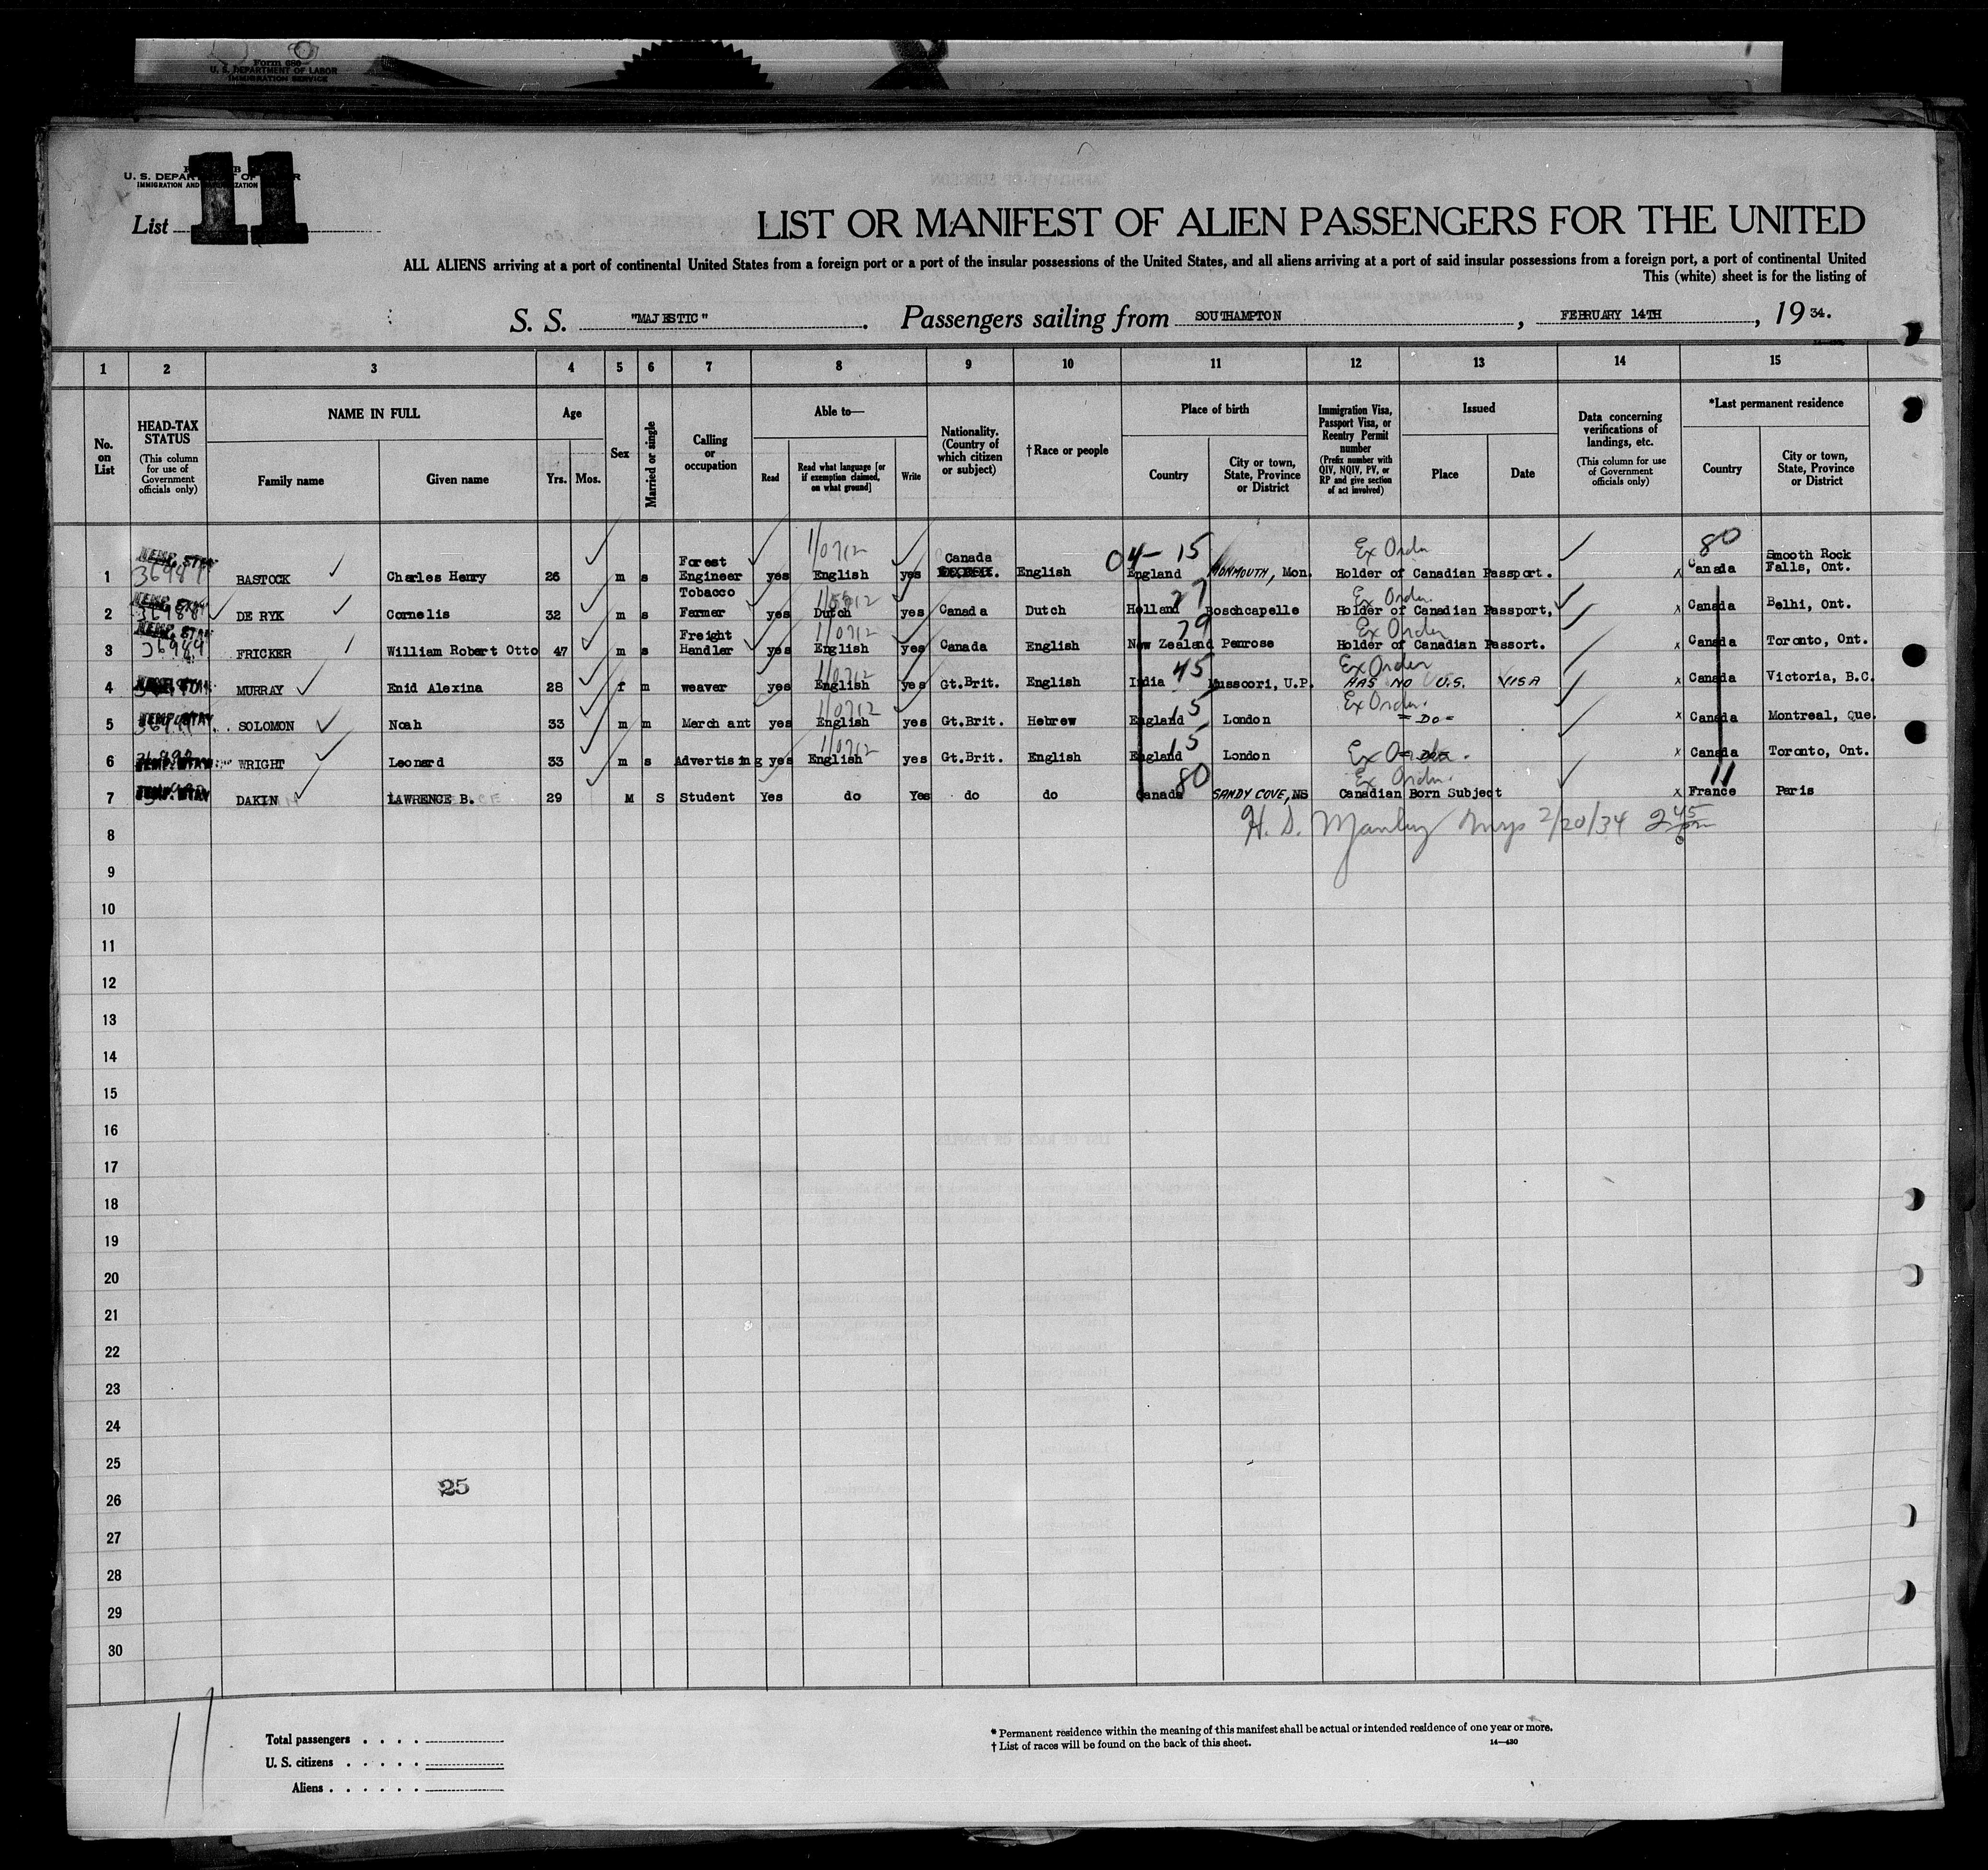 Form 680
U. S. DEPARTMENT OF LABOR
IMMIGRATION SERVICE
11
U. S. DEPARTMENT OF LABOR
List
LIST OR MANIFEST OF ALIEN PASSENGERS FOR THE UNITED
ALL ALIENS arriving at a port of continental United States from a foreign port or a port of the insular possessions of the United States, and all aliens arriving at a port of said insular possessions from a foreign port, a port of continental United
This (white) sheet is for the listing of
S. S. "MAJESTIC". Passengers sailing from SOUTHAMPTON, FEBRUARY 14TH, 1934.
1 2 3 4 5 6 7 8 9 10 11 12 13 14 15
No. on List
HEAD-TAX STATUS (This column for use of Government officials only)
NAME IN FULL
Family name
Given name
Age
Yrs. Mos.
Sex
Married or single
Calling or occupation
Able to—
Read
Read what language [or if exemption claimed, on what ground]
Write
Nationality. (Country of which citizen or subject)
†Race or people
Place of birth
Country
City or town, State, Province or District
Immigration Visa, Passport Visa, or Reentry Permit number (Prefix number with QIV, NQIV, PV, or RP and give section of act involved)
Issued
Place
Date
Data concerning verifications of landings, etc. (This column for use of Government officials only)
*Last permanent residence
Country
City or town, State, Province or District
1 BASTOCK Charles Henry 26 m s Forest Engineer yes English yes Canada English England MONMOUTH, Mon. Ex Order Holder of Canadian Passport. x Canada Smooth Rock Falls, Ont.
04- 15 80
2 DE RYK Cornelis 32 m s Tobacco Farmer yes Dutch yes Canada Dutch Holland Boschcapelle Ex Order. Holder of Canadian Passport, x Canada Delhi, Ont.
27
3 36989 FRICKER William Robert Otto 47 m s Freight Handler yes English yes Canada English New Zealand Penrose Ex Order Holder of Canadian Passort. x Canada Toronto, Ont.
79
4 MURRAY Enid Alexina 28 f m weaver yes English yes Gt.Brit. English India Mussoori, U.P. Ex Order HAS NO U.S. VISA x Canada Victoria, B.C.
45
5 SOLOMON Noah 33 m m Merchant yes English yes Gt.Brit. Hebrew England London Ex Order. = DO = x Canada Montreal, Que.
15
6 WRIGHT Leonard 33 m s Advertising yes English yes Gt.Brit. English England London Ex Order. x Canada Toronto, Ont.
15
7 DAKIN LAWRENCE B. 29 M S Student Yes do Yes do do Canada SANDY COVE, NS Ex Order. Canadian Born Subject x France Paris
80 11
8 H. D. Manley 2/20/34 2 45
9
10
11
12
13
14
15
16
17
18
19
20
21
22
23
24
25
25
26
27
28
29
30
11
Total passengers
U. S. citizens
Aliens
* Permanent residence within the meaning of this manifest shall be actual or intended residence of one year or more.
† List of races will be found on the back of this sheet.
14—430